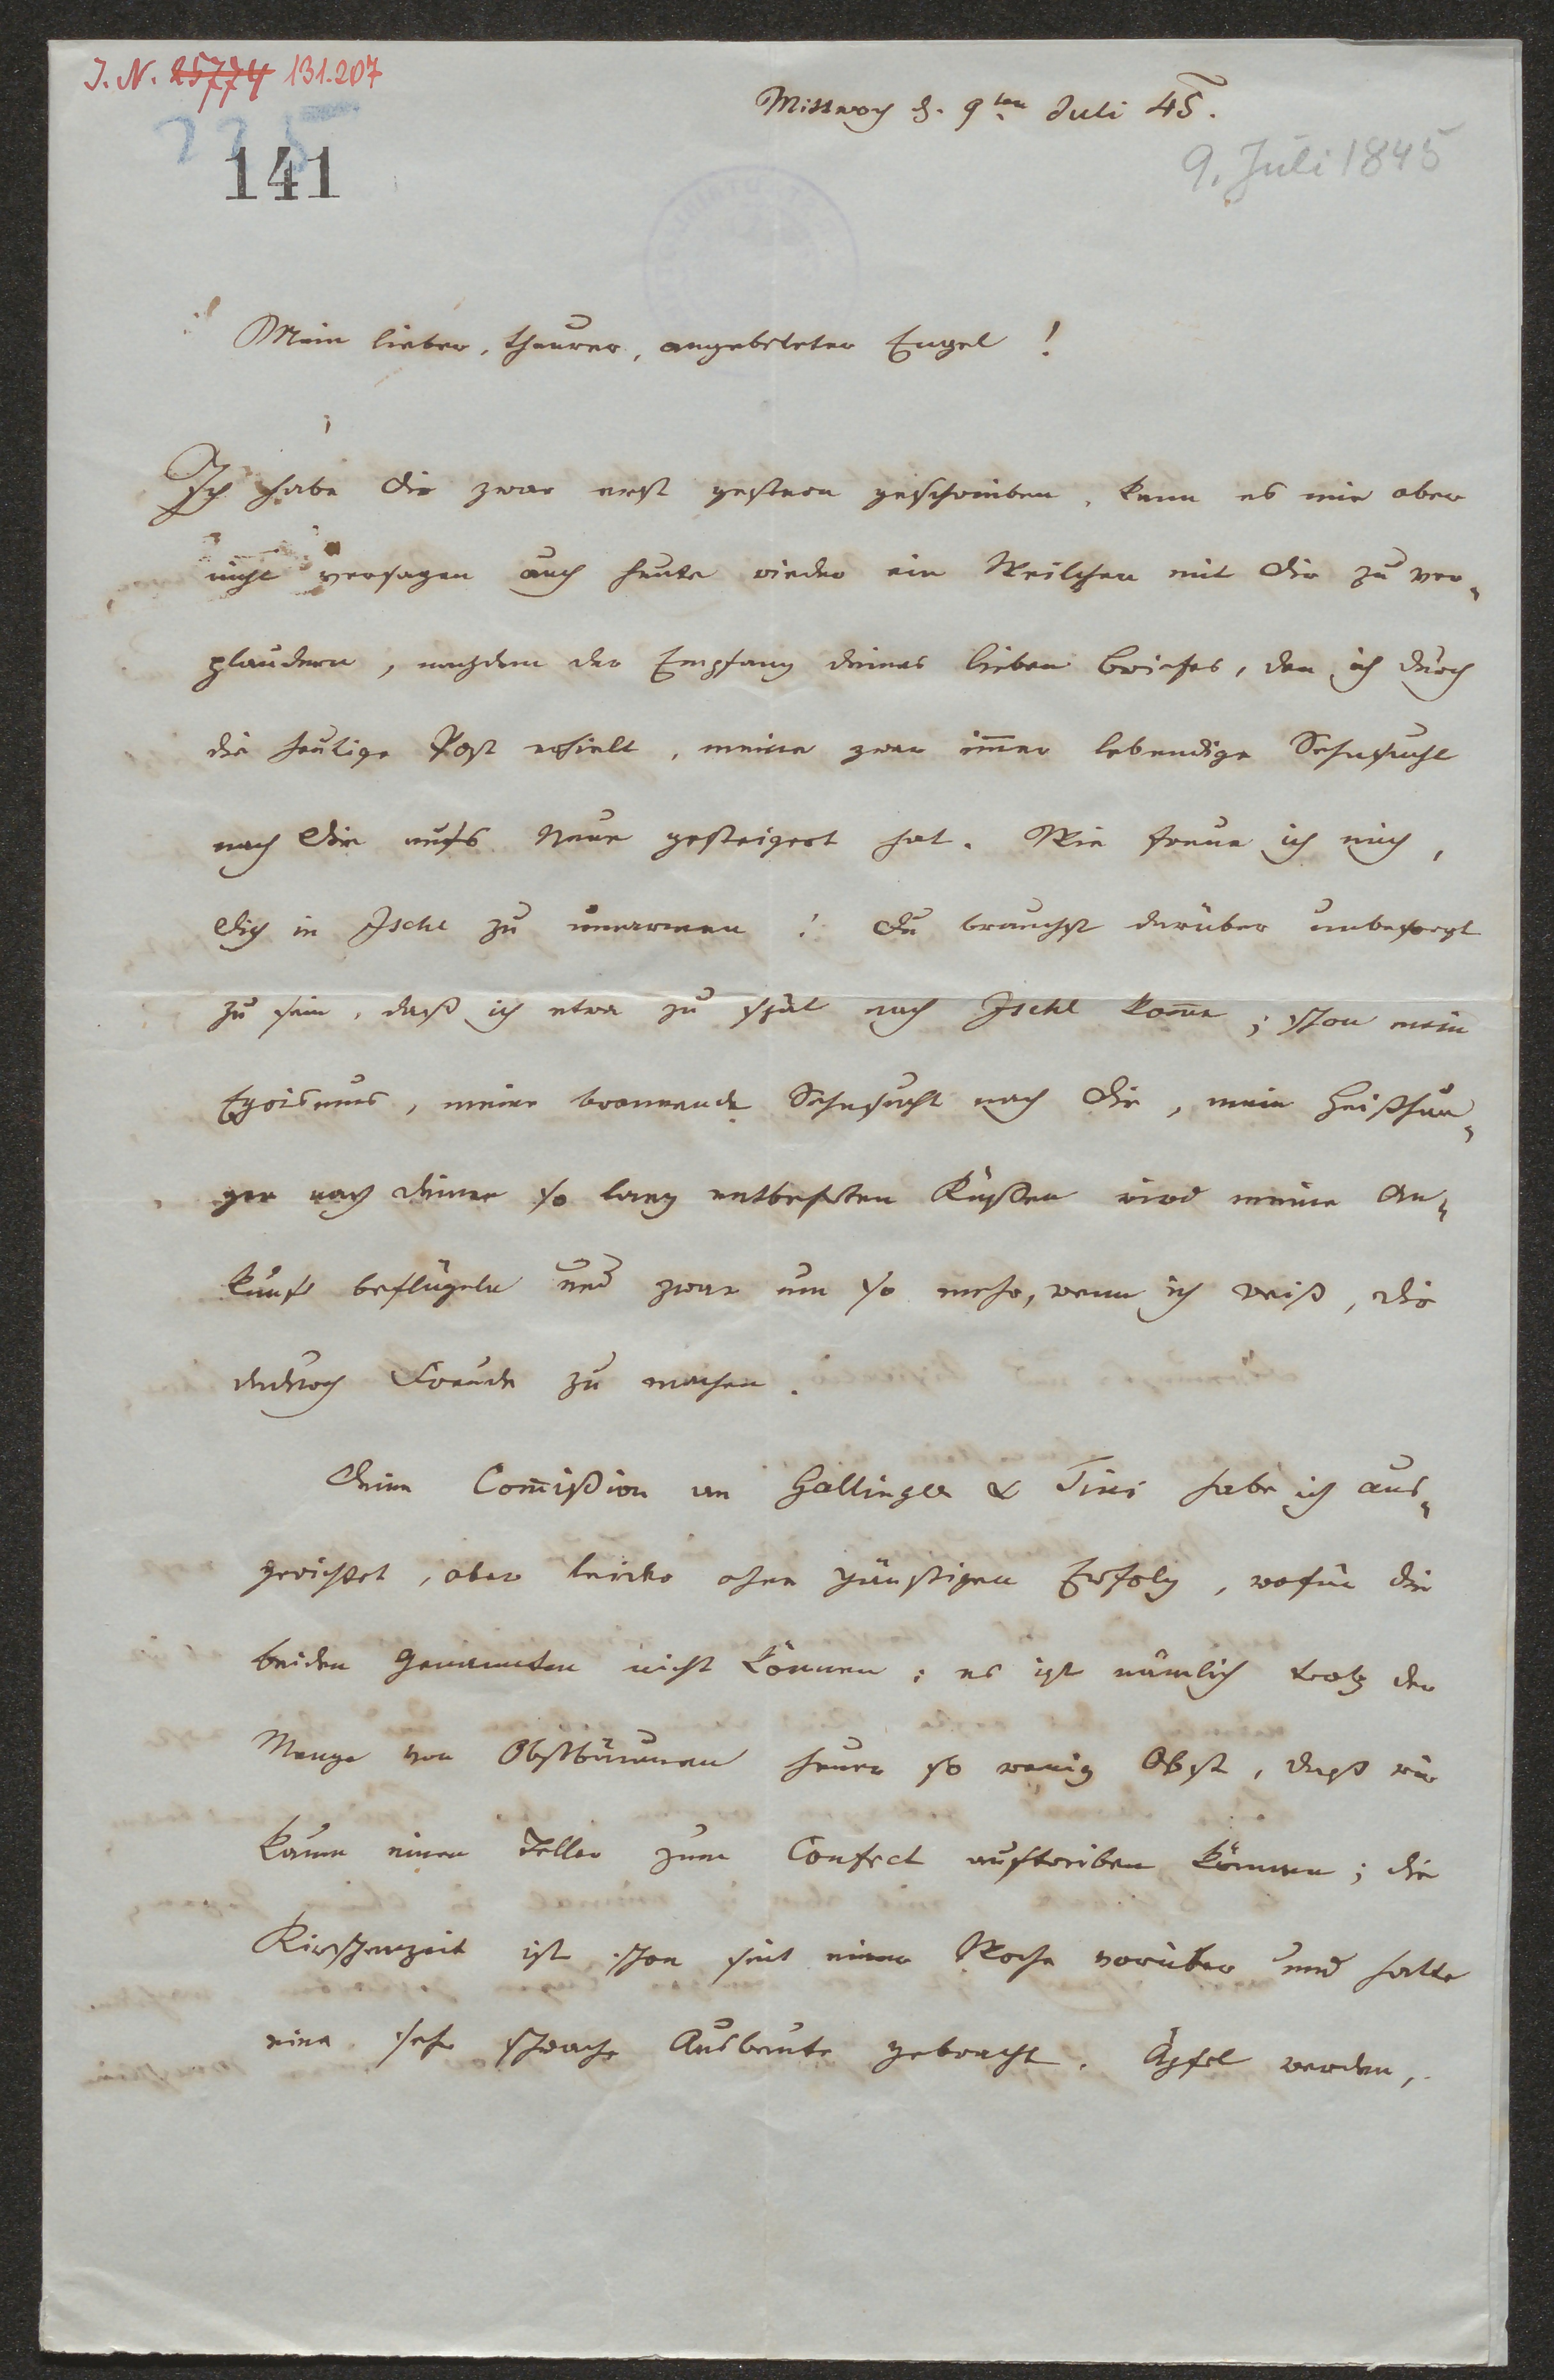 J. N. 25774 131.207
Mittwoch d. 9ten Juli 45.
141
9. Juli 1845
Mein lieber, theurer, angebeteter Engel!
Ich habe Dir zwar erst gestern geschrieben, kann es mir aber
nicht versagen auch heute wieder ein Weilchen mit Dir zu ver-
plaudern, nachdem der Empfang deines lieben Briefes, den ich durch
die heutige Post erhielt, meine zwar im̅er lebendige Sehnsucht
nach Dir aufs Neue gesteigert hat. Wie freue ich mich,
Dich in Ischl zu umarmen! Du brauchst darüber unbesorgt
zu sein, daß ich etwa zu spät nach Ischl kom̅e; schon mein
Egoismus, meine brennende Sehnsucht nach Dir, mein Heißhun-
ger nach deinen so lang entbehrten Küßen wird meine An-
kunft beflügeln und zwar um so mehr, wenn ich weiß, Dir
dadurch Freude zu machen.
Deine Com̅ißion an Hallinger & Tini habe ich aus-
gerichtet, aber leider ohne günstigen Erfolg, wofür die
beiden Genannten nicht können; es ist nämlich trotz der
Menge von Obstbäumen heuer so wenig Obst, daß wir
kaum einen Teller zum Confect auftreiben können; die
Kirschenzeit ist schon seit einer Woche vorüber und hatte
eine sehr schwache Ausbeute gebracht. Äpfel werden,